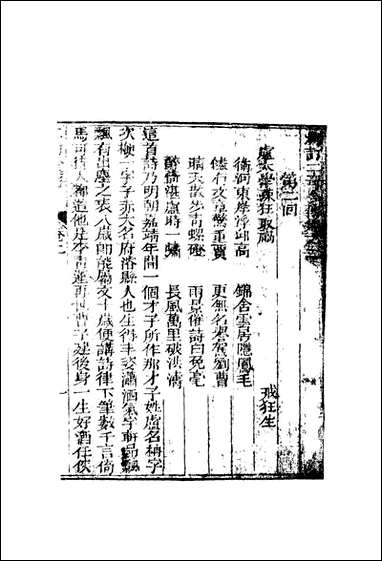 第二回
盧太學疎狂取禍　戒狂生
衛河東岸浮丘高　錦舍雲居隱鳳毛
有文章驚董賈　更無名譽駕劉曹
晴天散步青螺磴　雨景催詩白兔毫
醉倚湛盧時一嘯　長風萬里破洪濤
這首詩乃明朝嘉靖年間一個才子所作那才子姓盧名柟字
次楩一字子赤大名府濬縣人也生得丰姿瀟洒氣宇軒昂飄
飄有出塵之表八歲即能屬文十歲便講詩律下筆數千言倚
馬可待人都道他是李青蓮再世曹子建後身一生好酒任俠